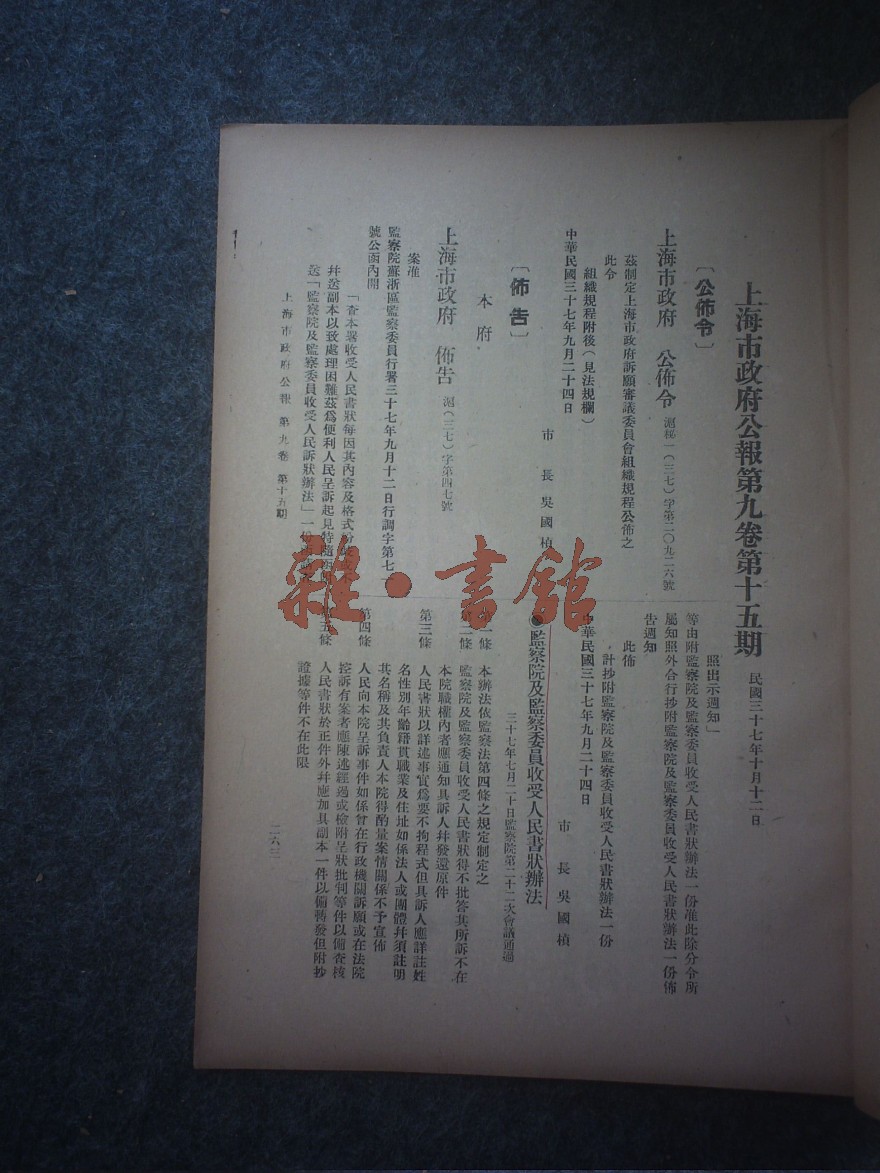 上海市政府公報第九卷第十五期 民國三十七年十月十二日
〔公佈令〕
上海市政府 公佈令 滬秘一(三七)字第二〇九二六號
茲制定上海市政府訴願審議委員會組織規程公佈之
此令
組織規程附後(見法規欄)
中華民國三十七年九月二十四日
市長 吳國楨
〔佈告〕
本府
上海市政府 佈告 滬(三七)字第四七號
案准
監察院蘇浙區監察委員行署三十七年九月十二日行調字第七一
號公函內開
「查本署收受人民書狀每因其內容及格式
幷送副本以致處理困難茲為便利人民呈訴起見特隨
送「監察院及監察委員收受人民訴狀辦法」一份
照出示週知」
等由附監察院及監察委員收受人民書狀辦法一份准此除分令所
屬知照外合行抄附監察院及監察委員收受人民書狀辦法一份佈
告週知
此佈
計抄附監察院及監察委員收受人民書狀辦法一份
中華民國三十七年九月二十四日
市長 吳國楨
●監察院及監察委員收受人民書狀辦法
三十七年七月二十日監察院第二十二次會議通過
第一條 本辦法依監察法第四條之規定制定之
第二條 監察院及監察委員收受人民書狀得不批答其所訴不在
本院職權內者應通知具訴人幷發還原件
第三條 人民書狀以詳述事實為要不拘程式但具訴人應詳註姓
名性別年齡籍貫職業及住址如係法人或團體幷須註明
其名稱及其負責人本院得酌量案情關係不予宣佈
第四條 人民向本院呈訴事件如係曾在行政機關訴願或在法院
控訴有案者應陳述經過或檢附呈狀批判等件以備查核
第五條 人民書狀於正件外幷應加具副本一件以備轉發但附抄
證據等件不在此限
上海市政府公報 第九卷 第十五期
二六三
雜·書館